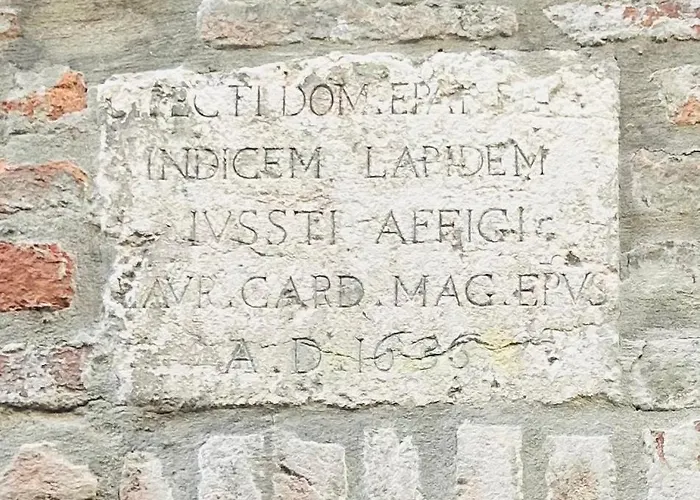 DOM.
INDICEM LAPIDEM
IVSSTI AFFIGI
CARD.MAG.EPVS
A.D.1636